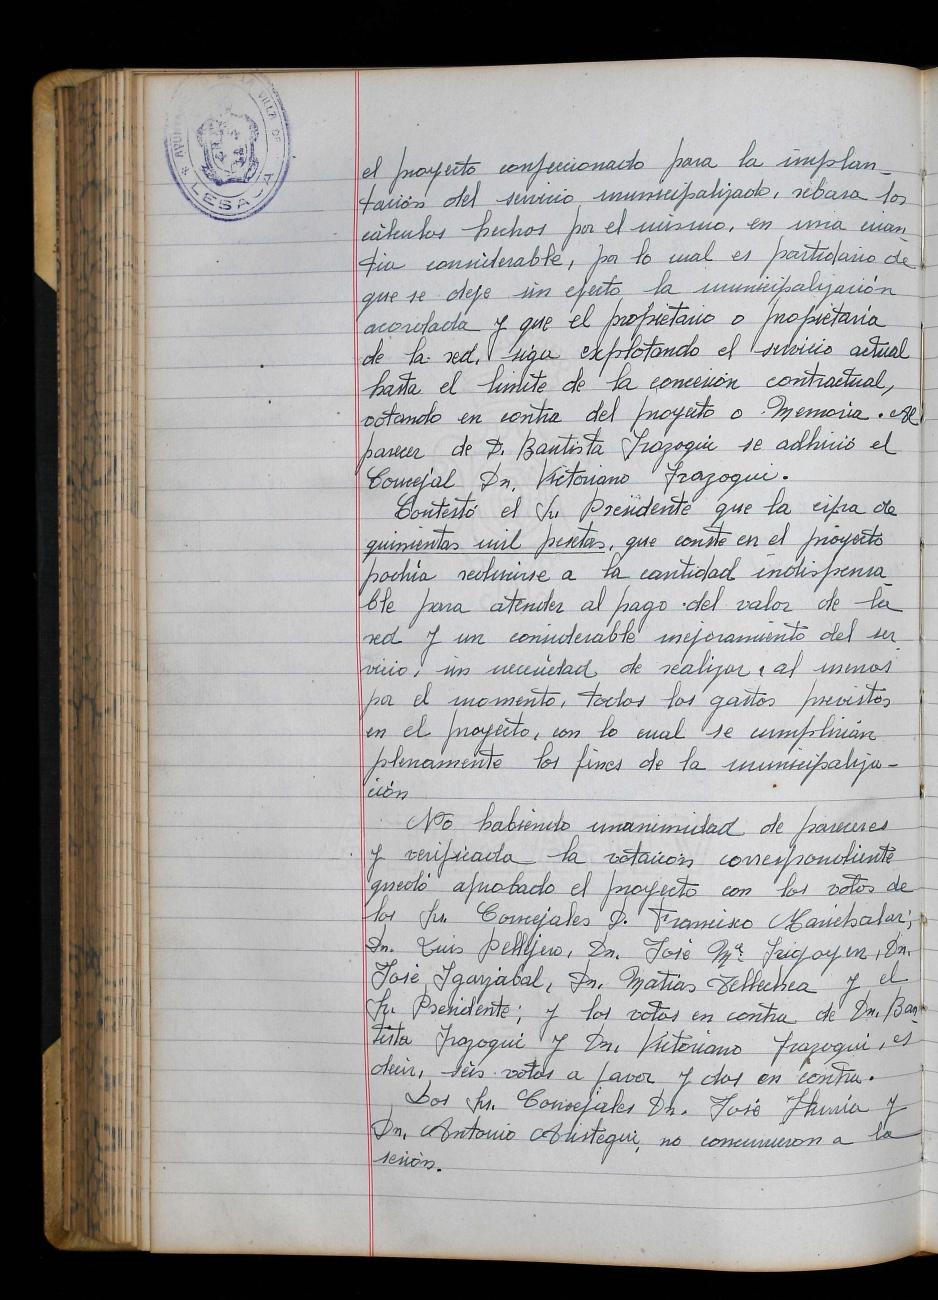 AYUNTA LA VILLA DE
LESACA
el proyecto confeccionado para la implan-
tación del servicio municipalizado, rebasa los
cálculos hechos por el mismo, en una cuan
tia considerable, por lo cual es partidario de
que se deje sin efecto la municipalización
acordada y que el propietario o propietaria
de la red, siga explotando el servicio actual
hasta el limite de la concesión contractual,
votando en contra del proyecto o Memoria. Al
parecer de D. Bautista Irazoqui se adhirió el
Concejal Dn. Victoriano Irazoqui.
Contestó el Sr. Presidente que la cifra de
quinientas mil pesetas, que consta en el proyecto
podria reducirse a la cantidad indispensa
ble para atender al pago del valor de la
red y un considerable mejoramiento del ser
vicio, sin necesidad de realizar, al menos
por el momento, todos los gastos previstos
en el proyecto, con lo cual se cumplirian
plenamente los fines de la municipaliza-
ción
No habiendo unanimidad de pareceres
y verificada la votación correspondiente
quedó aprobado el proyecto con los votos de
los Sr. Concejales D. Francisco Marichalar;
Dn. Luis Pellejero, Dn. José Mª Irigoyen, Dn.
José Igarzabal, Dn. Matias Tellechea y el
Sr. Presidente; y los votos en contra de Dn. Bau
tista Irazoqui y Dn. Victoriano Irazoqui, es
decir, seis votos a favor y dos en contra.
Los Sr. Concejales Dn. José y
Dn. Antonio Aristegui, no concurrieron a la
sesión.